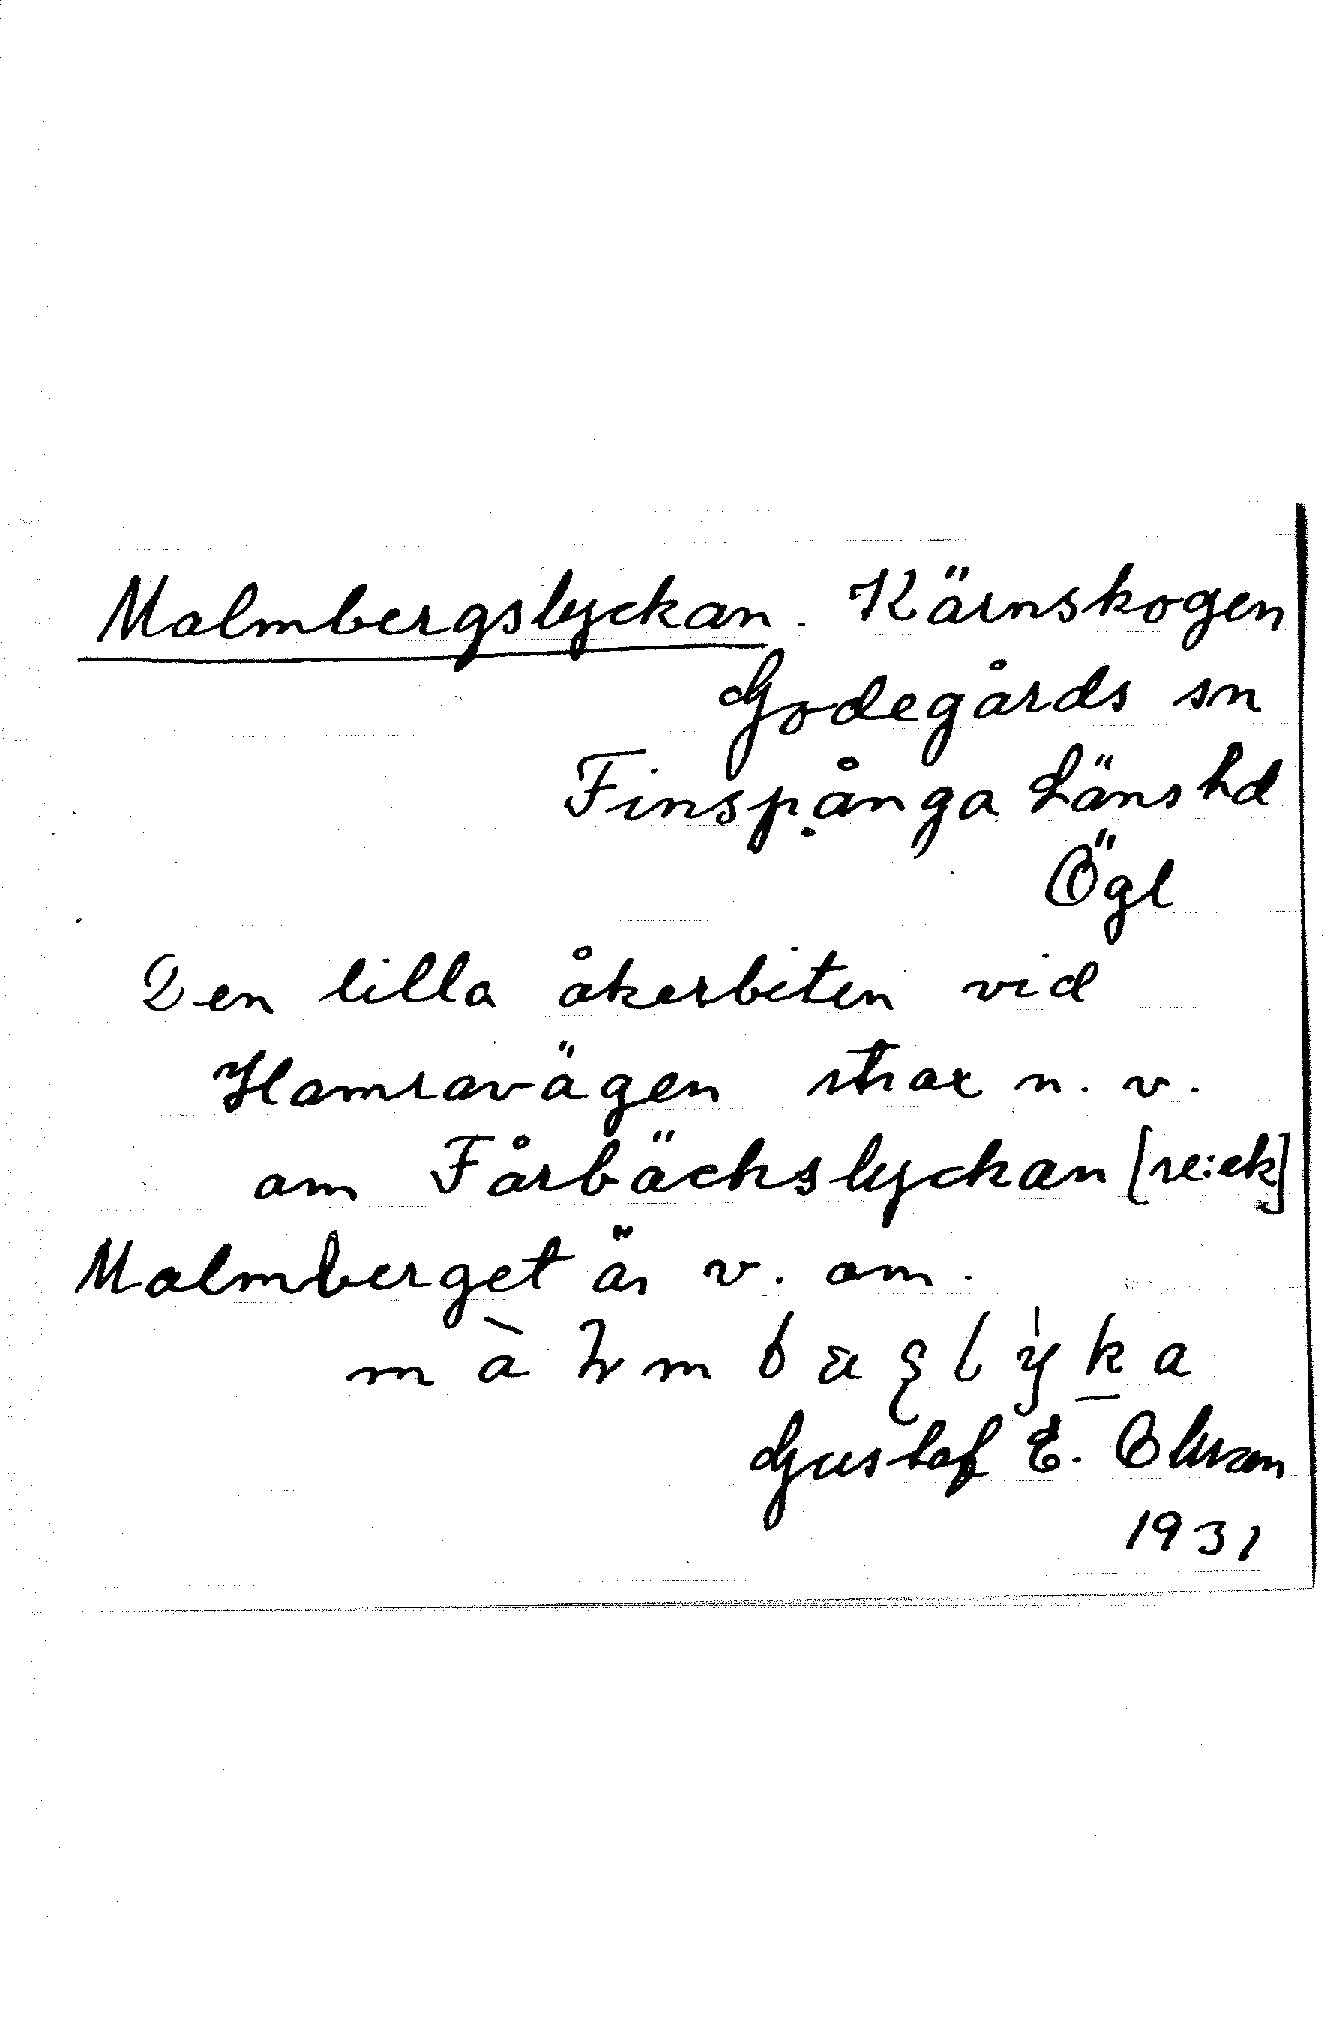 Malmbergslyckan. Kärnskogen
Godegårds sn
Finspånga Läns hd
Ögl
Den lilla åkerbiten vid
Hamravägen strax n. v.
om Fårbäckslyckan [se: ek]
Malmberget är v. om.
Gustaf E. Olsson
1931